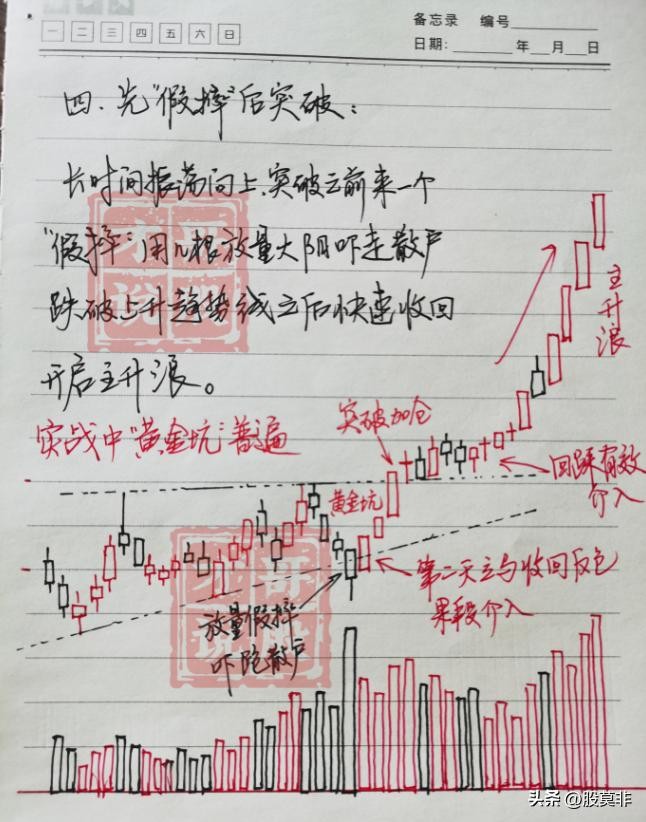 备忘录 编号
一 二 三 四 五 六 日
日期: 年 月 日
四、先"假摔"后突破:
长时间振荡向上、突破之前来一个
"假摔"用几根放量大阴吓走散户
跌破上升趋势线之后快速收回
开启主升浪。
实战中"黄金坑"普遍
主升浪
突破加仓
回踩有效
介入
黄金坑
第二天立马收回反包
果段介入
放量假摔
吓跑散户
头条 @股莫非